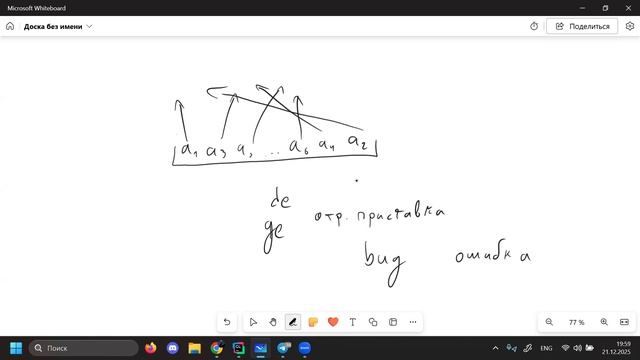 Microsoft Whiteboard
Доска без имени
Поделиться
a₁ a₃ a₅ .. a₆ a₄ a₂
de
де отр. приставка
bug ошибка
77 %
Поиск
ENG
19:59
21.12.2025